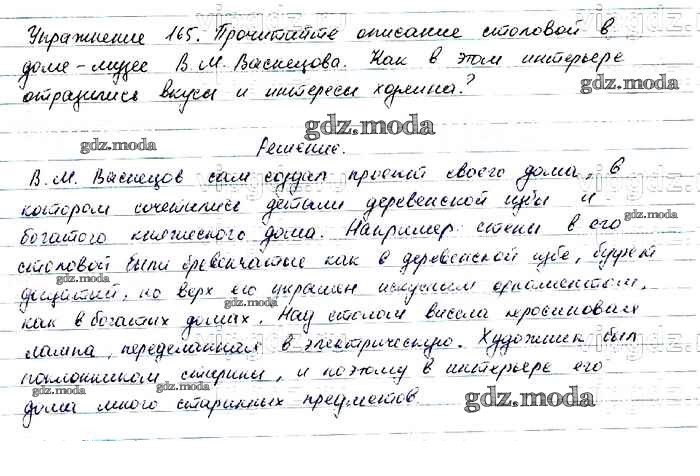 Упражнение 165. Прочитайте описание столовой в
доме-музее В.М. Васнецова. Как в этом интерьере
отразились вкусы и интересы хозяина?
gdz.moda
gdz.moda
gdz.moda
Решение.
В.М. Васнецов сам создал проект своего дома, в
котором сочетались детали деревенской избы и
gdz.moda
богатого княжеского дома. Например стены в его
столовой были бревенчатые как в деревенской избе, буфет
gdz.moda
дощатый, но верх его украшен искусным орнаментом,
gdz.moda
как в богатых домах. Над столом висела керосиновая
лампа, переделанная в электрическую. Художник был
поклонником старины, и поэтому в интерьере его
gdz.moda
gdz.moda
дома много старинных предметов
gdz.moda